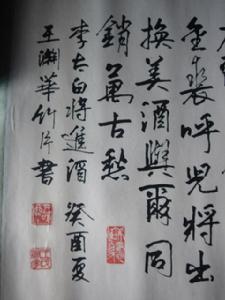 金裘呼兒將出
換美酒與爾同
銷萬古愁
李太白將進酒 癸酉夏
王 華竹 书